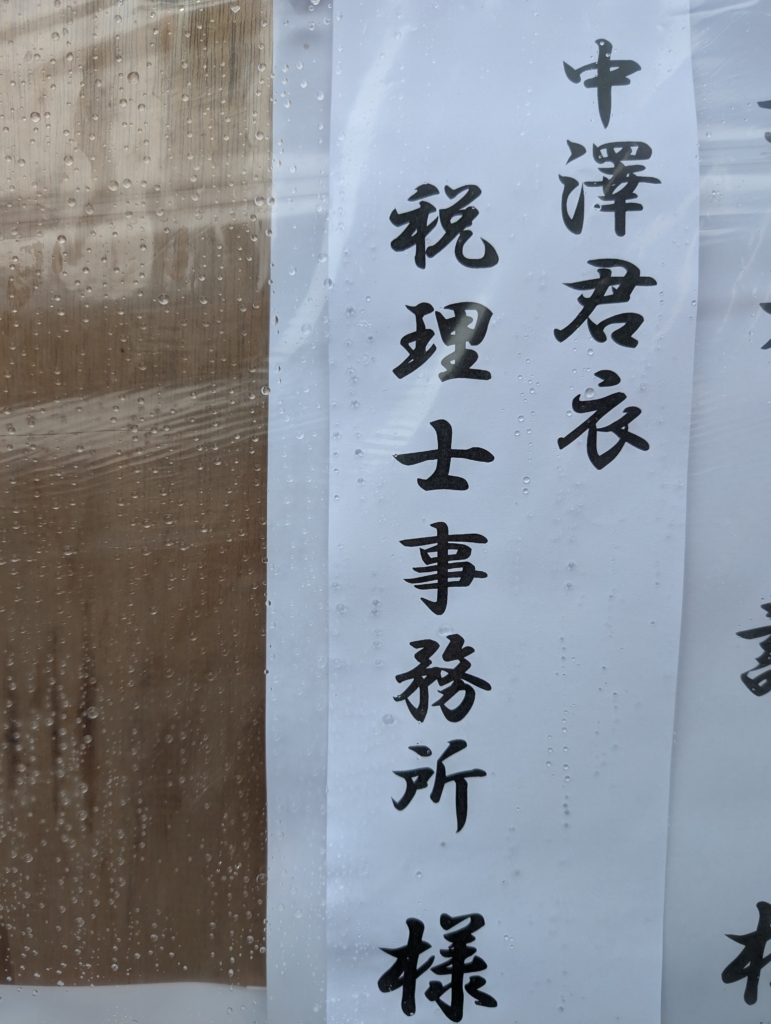 中澤君衣
税理士事務所 様